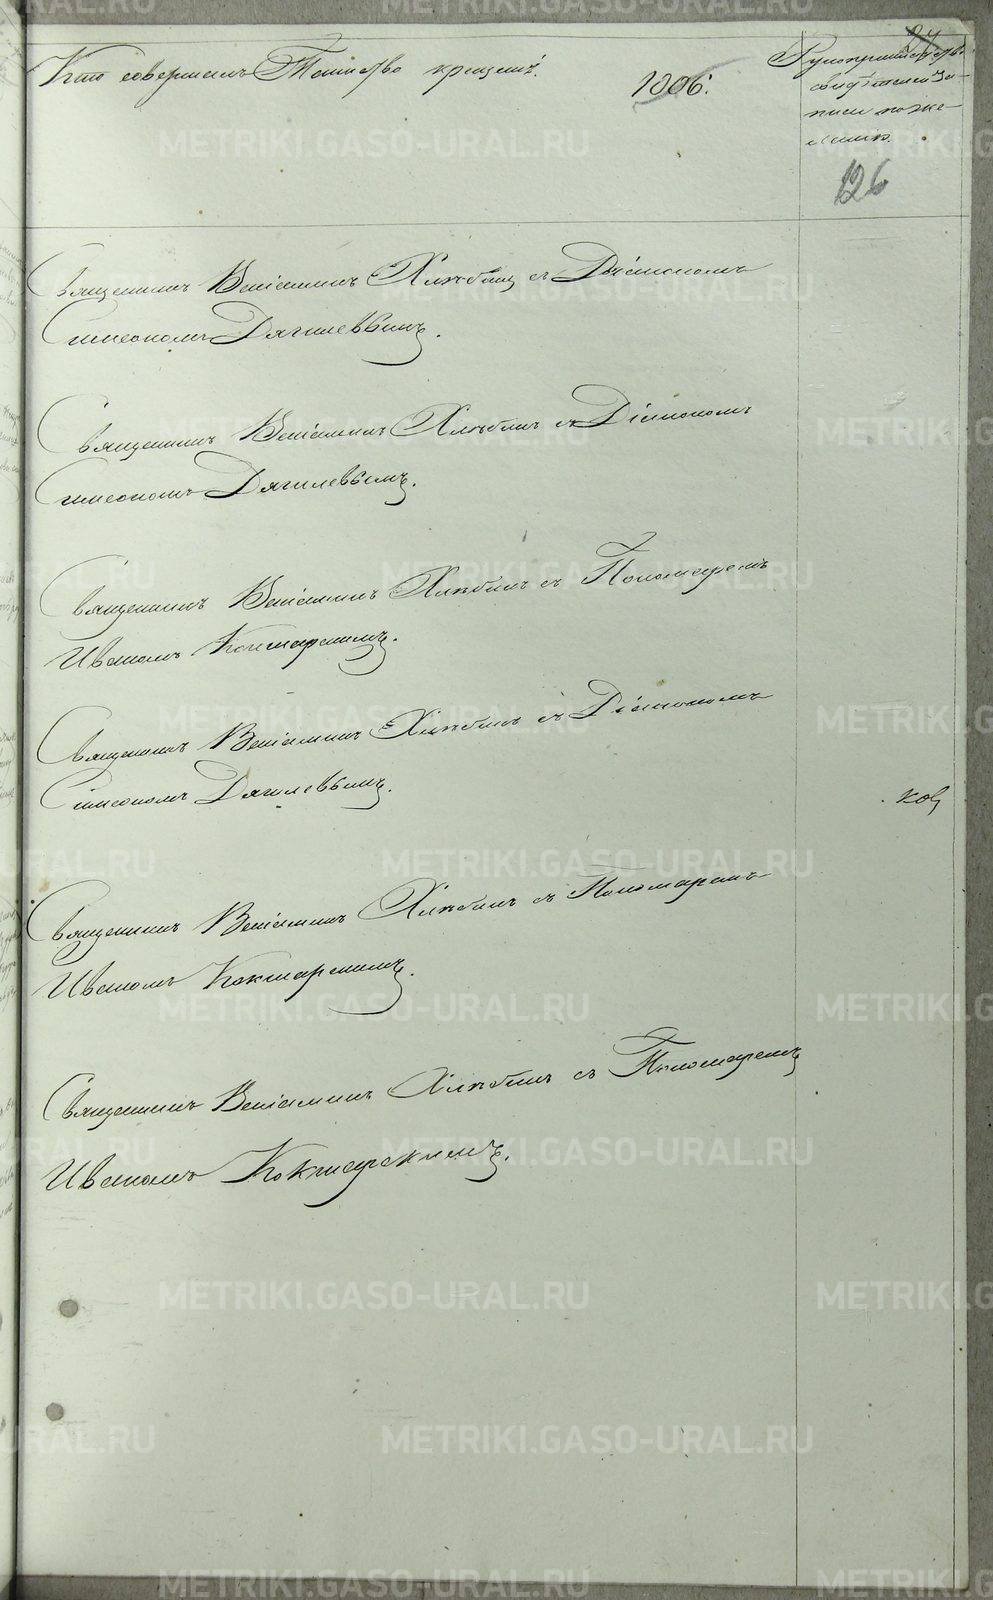 Кто совершалъ Таинство крещенія.
1006.
Рукоприкладств.
свидѣтелей За-
писи по же-
ланію.
126
Священникъ Веніаминъ Хлѣбинъ съ Діакономъ
Симеономъ Дягилевымъ.
Священникъ Веніаминъ Хлѣбинъ съ Діакономъ
Симеономъ Дягилевымъ.
Священникъ Веніаминъ Хлѣбинъ съ Пономаремъ
Иваномъ Кокшарскимъ.
Священникъ Веніаминъ Хлѣбинъ съ Діакономъ
Симеономъ Дягилевымъ.
ков
Священникъ Веніаминъ Хлѣбинъ съ Пономаремъ
Иваномъ Кокшарскимъ.
Священникъ Веніаминъ Хлѣбинъ съ Пономаремъ
Иваномъ Кокшарскимъ.
METRIKI.GASO-URAL.RU